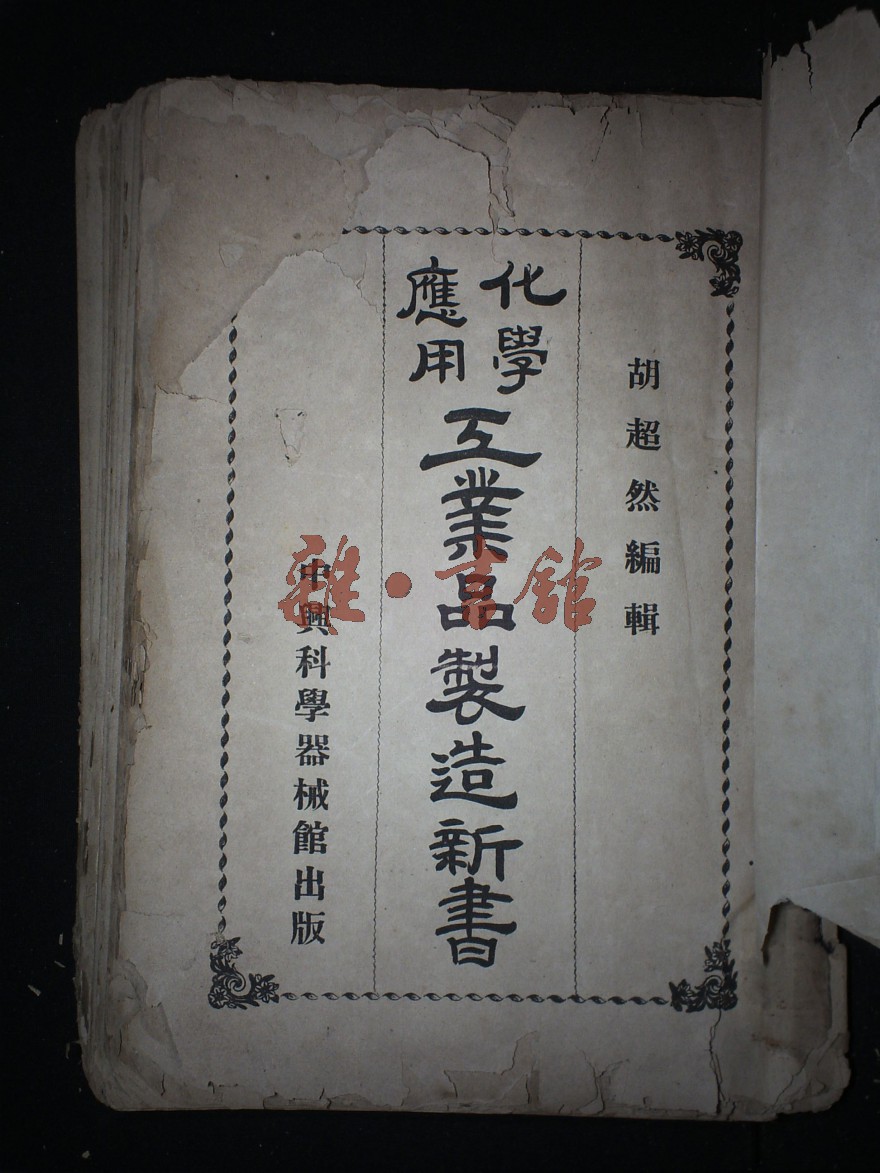 胡超然編輯
化學
應用
工業品製造新書
中興科學器械館出版
雜·書館